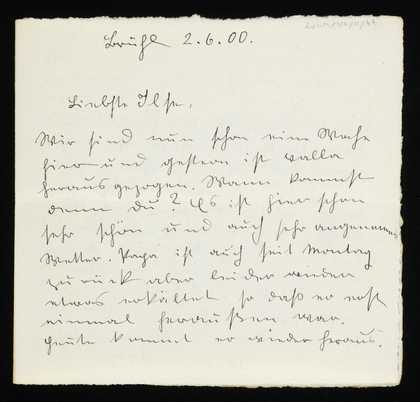 Brühl 2.6.00.
Liebste Ilse,
Wir sind nun schon eine Woche
hier und gestern ist
herausgezogen. Wann kommst
denn du? Es ist hier schon
sehr schön und auch sehr angenehmes
Wetter. Papa ist auch seit Montag
zurück aber leider wieder
etwas erkältet so daß er erst
einmal heraußen war.
Heute kommt er wieder heraus.